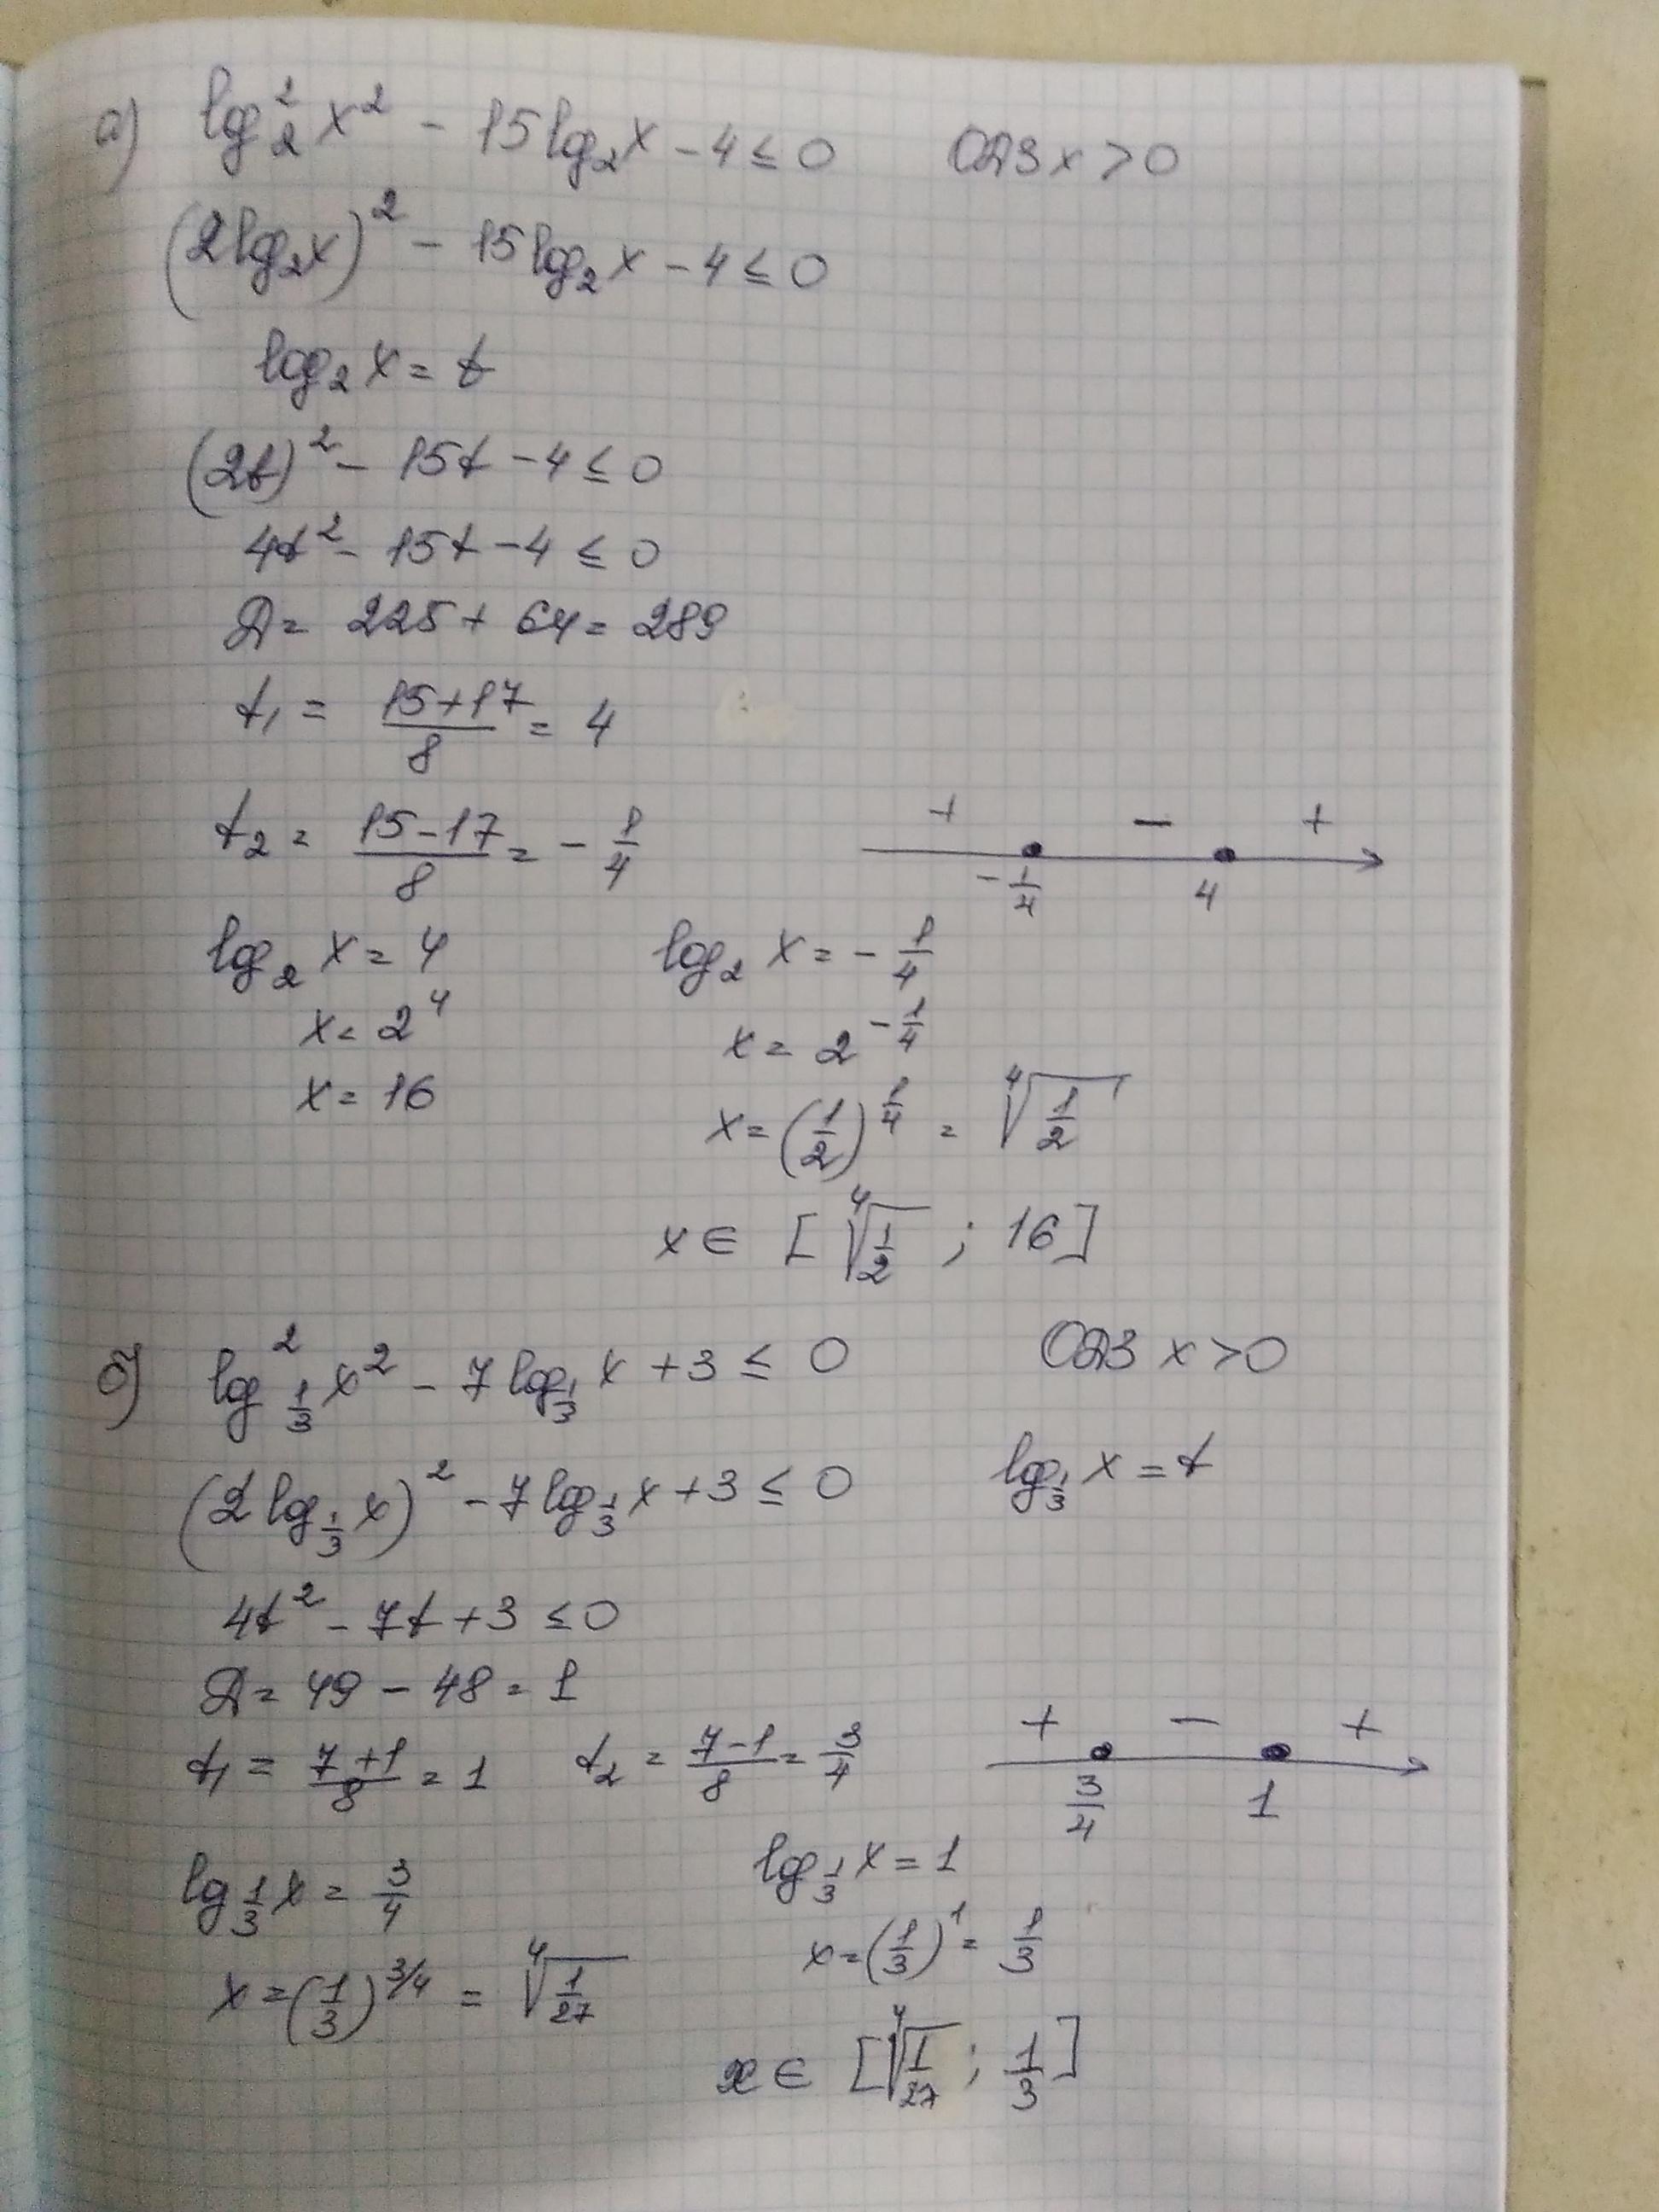 а) log₂² x² - 15 log₂ x - 4 ≤ 0 ОДЗ x > 0
(2 log₂ x)² - 15 log₂ x - 4 ≤ 0
log₂ x = t
(2t)² - 15t - 4 ≤ 0
4t² - 15t - 4 ≤ 0
Д = 225 + 64 = 289
t₁ = (15+17)/8 = 4
t₂ = (15-17)/8 = - 1/4
+ - +
-1/4 4
log₂ x = 4 log₂ x = - 1/4
x = 2⁴ x = 2^(-1/4)
x = 16 x = (1/2)^(1/4) = ⁴√(1/2)
x ∈ [⁴√(1/2) ; 16]
б) log²_(1/3) x² - 7 log_(1/3) x + 3 ≤ 0 ОДЗ x > 0
(2 log_(1/3) x)² - 7 log_(1/3) x + 3 ≤ 0 log_(1/3) x = t
4t² - 7t + 3 ≤ 0
Д = 49 - 48 = 1
t₁ = (7+1)/8 = 1 t₂ = (7-1)/8 = 3/4
+ - +
3/4 1
log_(1/3) x = 3/4 log_(1/3) x = 1
x = (1/3)^(3/4) = ⁴√(1/27) x = (1/3)¹ = 1/3
x ∈ [⁴√(1/27) ; 1/3]